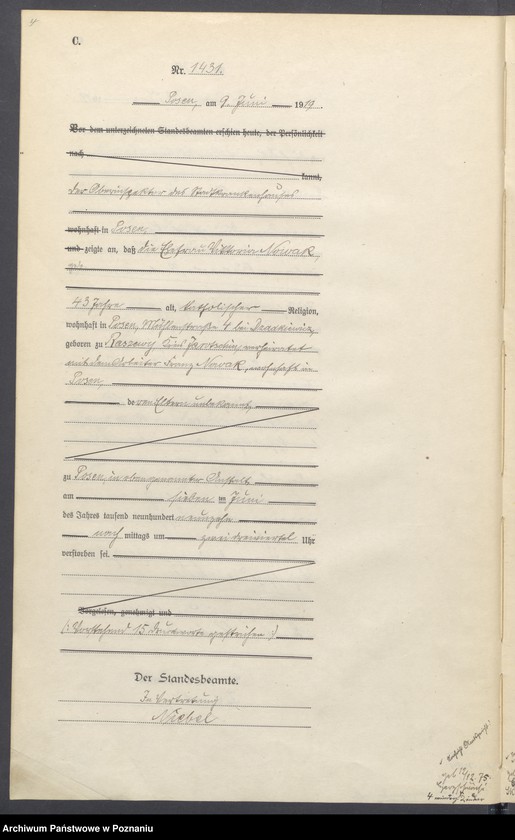 C.
Nr. 1431.
Posen, am 9. Juni 1919.
Vor dem unterzeichneten Standesbeamten erschien heute, der Persönlichkeit
nach
kannt,
der Oberinspektor des Stadtkrankenhauses
wohnhaft in Posen,
und zeigte an, daß die Ehefrau Viktoria Nowak,
geb.
45 Jahre alt, katholischer Religion,
wohnhaft in Posen, straße 4 bei
geboren zu Raszewy Kreis Jarotschin, verheiratet
mit dem Arbeiter Franz Nowak, wohnhaft in
Posen,
de ren Eltern unbekannt,
zu Posen, in oben genannter Anstalt
am sieben ten Juni
des Jahres tausend neunhundert neunzehn
nach mittags um zwei dreiviertel Uhr
verstorben sei.
Vorgelesen, genehmigt und
(: Vorstehend 15 Druckworte gestrichen :)
Der Standesbeamte.
In Vertretung
Niebel
geb. 12/12 75
4 Kinder
Archiwum Państwowe w Poznaniu